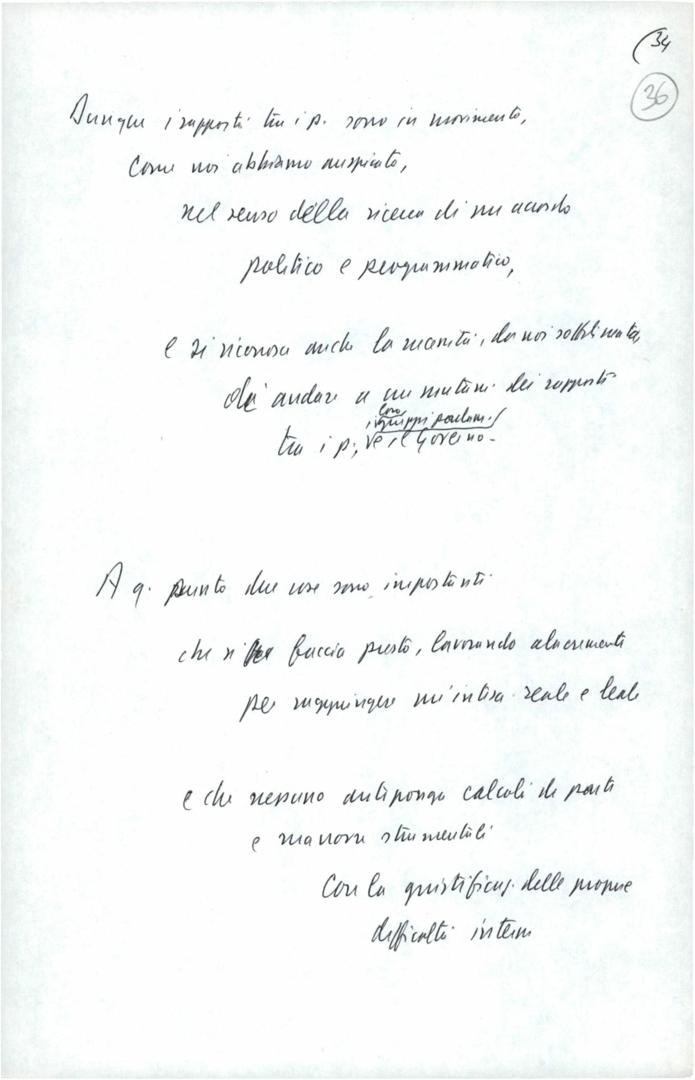 34
36
Dunque i rapporti tra i p. sono in movimento,
come noi abbiamo auspicato,
nel senso della ricerca di un accordo
politico e programmatico,
e si riconosce anche la necessità, da noi sottolineata,
di andare a un mutam. dei rapporti
con
i gruppi parlam.
tra i p., e il Governo.
A q. punto due cose sono importanti
che si faccia presto, lavorando alacremente
per raggiungere un'intesa reale e leale
e che nessuno anteponga calcoli di parte
e manovre strumentali
con la giustificaz. delle proprie
difficoltà interne